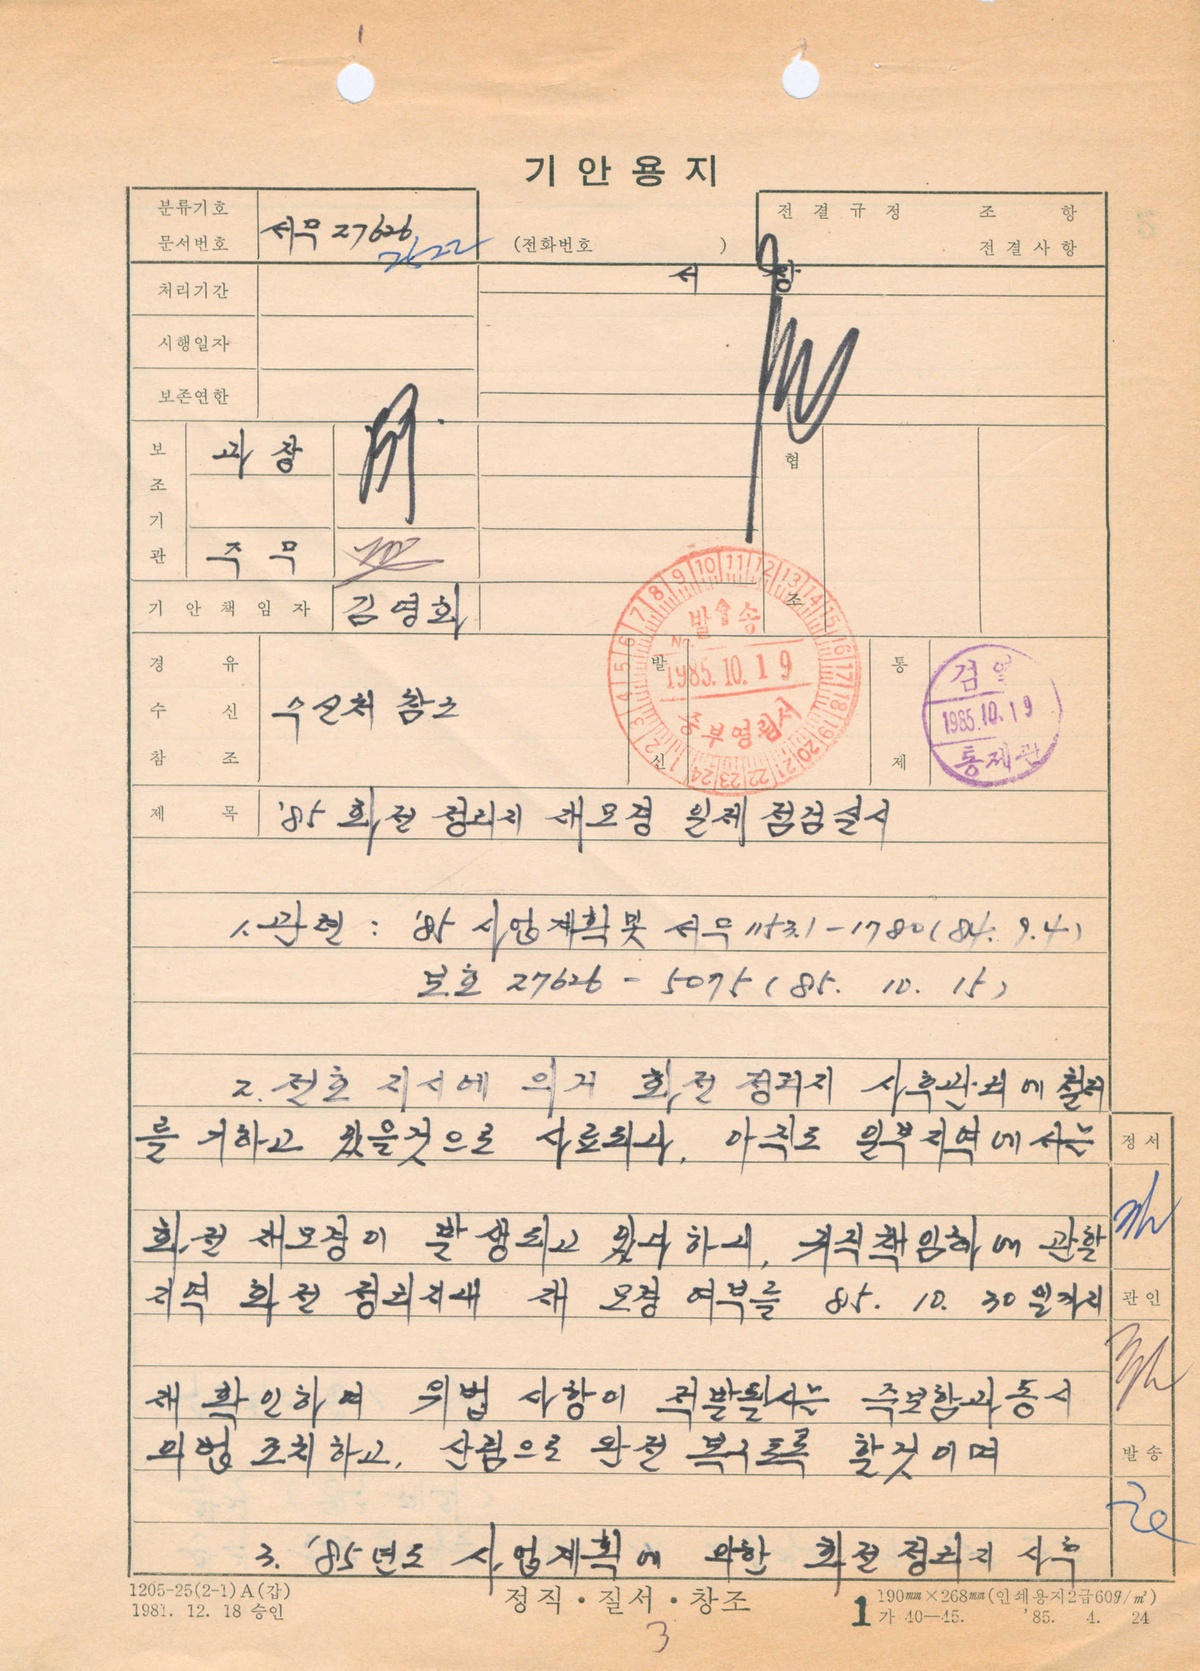 기안용지
분류기호
문서번호
서무 27626
(전화번호 )
전결규정 조 항
전결사항
처리기간
서 장
시행일자
보존연한
보조기관
과 장
주 무
협
조
기안책임자
김영회
경 유
수 신
참 조
수신처 참조
발
신
발송
No.
1985.10.19
중부영림서
통
제
검 열
1985.10.19
통제관
제 목
'85 화전 정리지 재모경 일제 점검실시
1. 관련 : '85 사업계획 및 서무 1153.1-1780 (84. 9. 4)
보호 27626 - 5075 (85. 10. 15)
2. 전호 지시에 의거 화전 정리지 사후관리에 철저
를 기하고 있을것으로 사료되나, 아직도 일부지역에서는
화전 재모경이 발생되고 있다하니, 귀직책임하에 관할
지역 화전 정리지내 재 모경 여부를 85. 10. 30 일까지
재 확인하여 위법 사항이 적발될시는 즉보함과 동시
의법 조치하고, 산림으로 완전 복구토록 할것이며
3. '85년도 사업계획에 의한 화전 정리지 사후
정서
관인
발송
1205-25(2-1)A(갑)
1981. 12. 18 승인
정직·질서·창조
1
190㎜×268㎜(인쇄용지2급60g/㎡)
가 40—45. '85. 4. 24
3